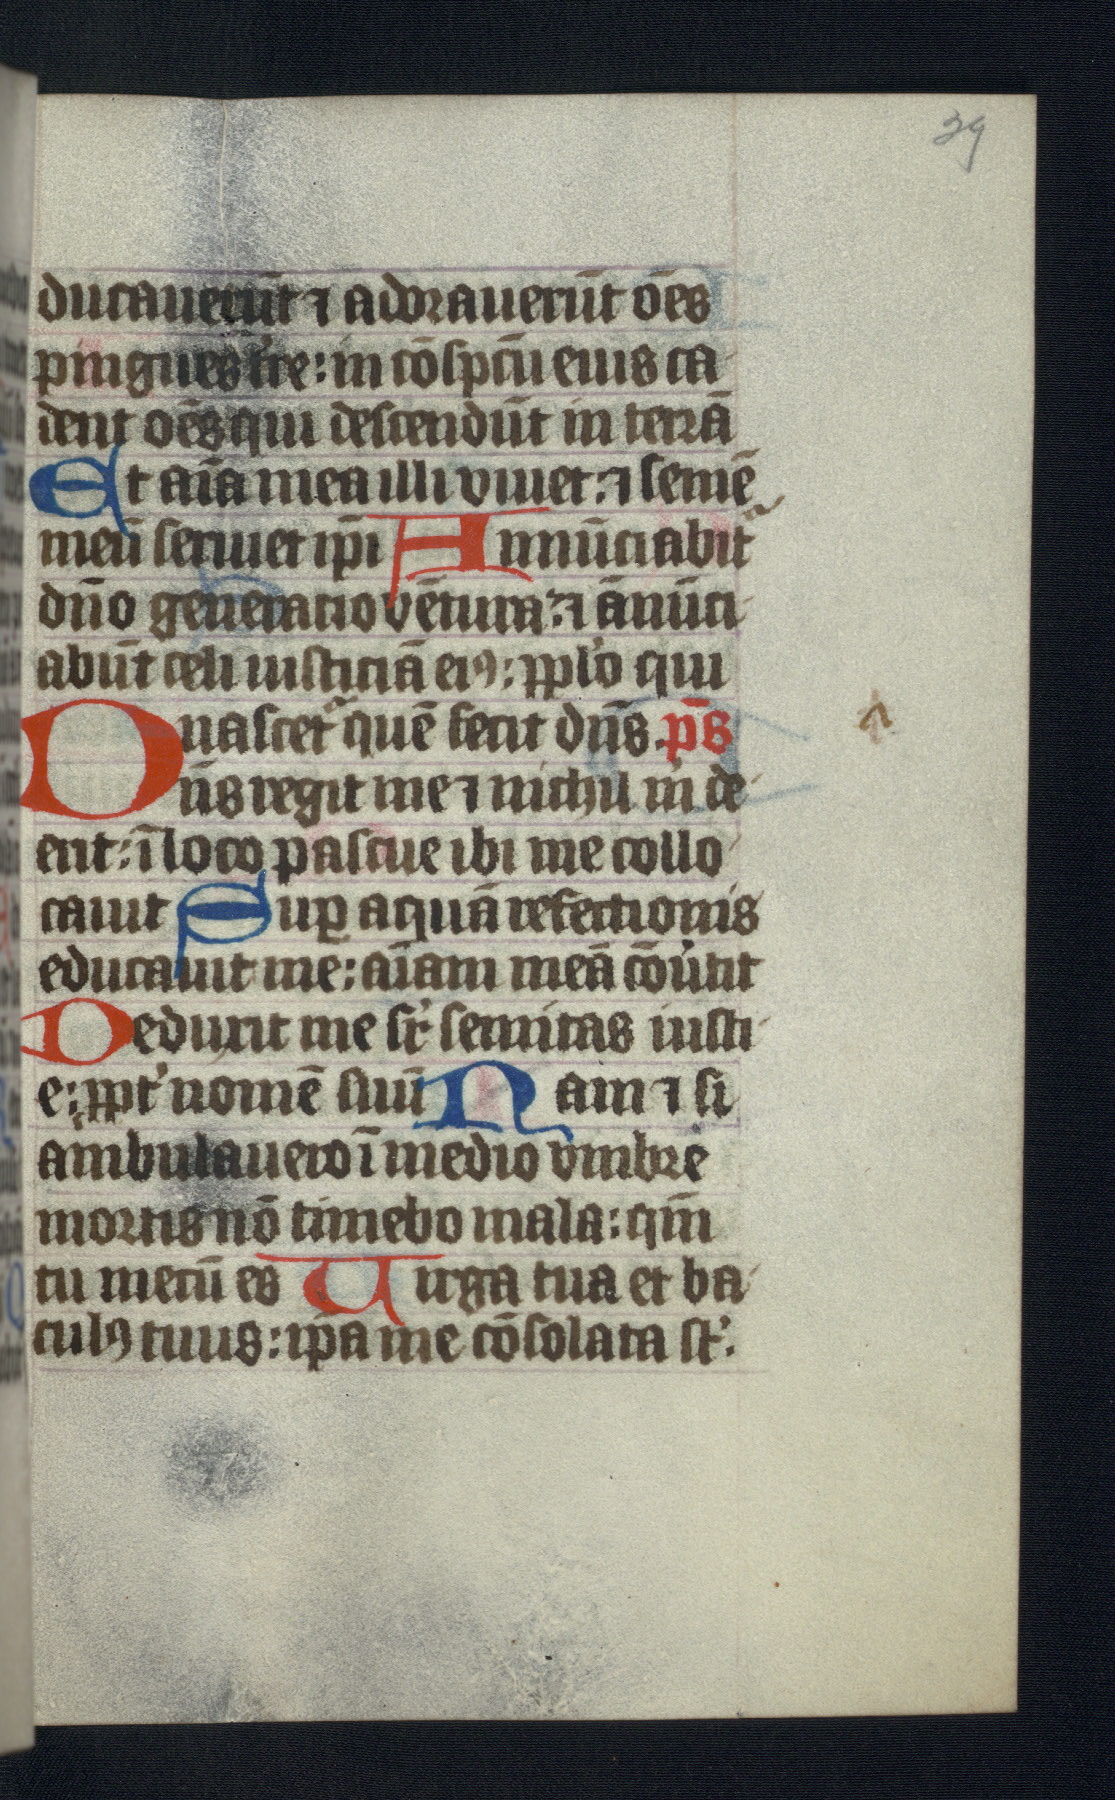 39
ducauerūt ⁊ adorauerūt oēs
pingues t̓re: in cōspc̄u eius ca
dent oēs qui descendūt in terrā
Et aīa mea illi viuet: ⁊ semē
meū seruiet ip̄i Annūciabit᷑
dn̄o generatio vētura: ⁊ ānūci
abūt celi iusticiā eiꝰ: pp̄lo qui
nascet᷑ quē fecit dn̄s. ps̄
Dn̄s regit me ⁊ nichil m̓ de
erit: ī loco pascue ibi me collo
cauit Suꝑ aquā refectionis
educauit me: aīam meā cōu̓tit
Deduxit me sr̓ semitas iusti
e: ꝓpt̓ nomē suū Nam ⁊ si
ambulauero ī medio vmbre
mortis nō timebo mala: qm̄
tu mecū es Uirga tua et ba
culꝰ tuus: ip̄a me cōsolata st̓.